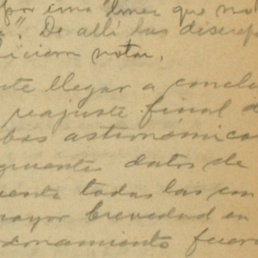 por una "linea que no
". De allí las discrep
hicieron notar.
te llegar a conclu
reajuste final d
bas astronómica
guientes datos de
uente todas las con
mayor brevedad en
cionamiento fuera